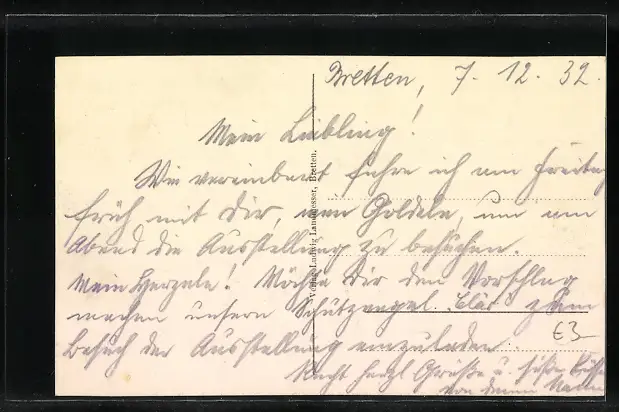 Bretten, 7. 12. 32.
Mein Liebling!
Wie vereinbart fahre ich am Freitag
früh mit Dir, mein Goldele, um am
Abend die Ausstellung zu besuchen.
Mein Herzele! Möchte Dir den Vorschlag
machen unsern Schutzengel zum
Besuch der Ausstellung einzuladen.
Recht herzl. Grüße u. süße Küsse
von deinem
Verlag Ludwig Landmesser, Bretten.
€3